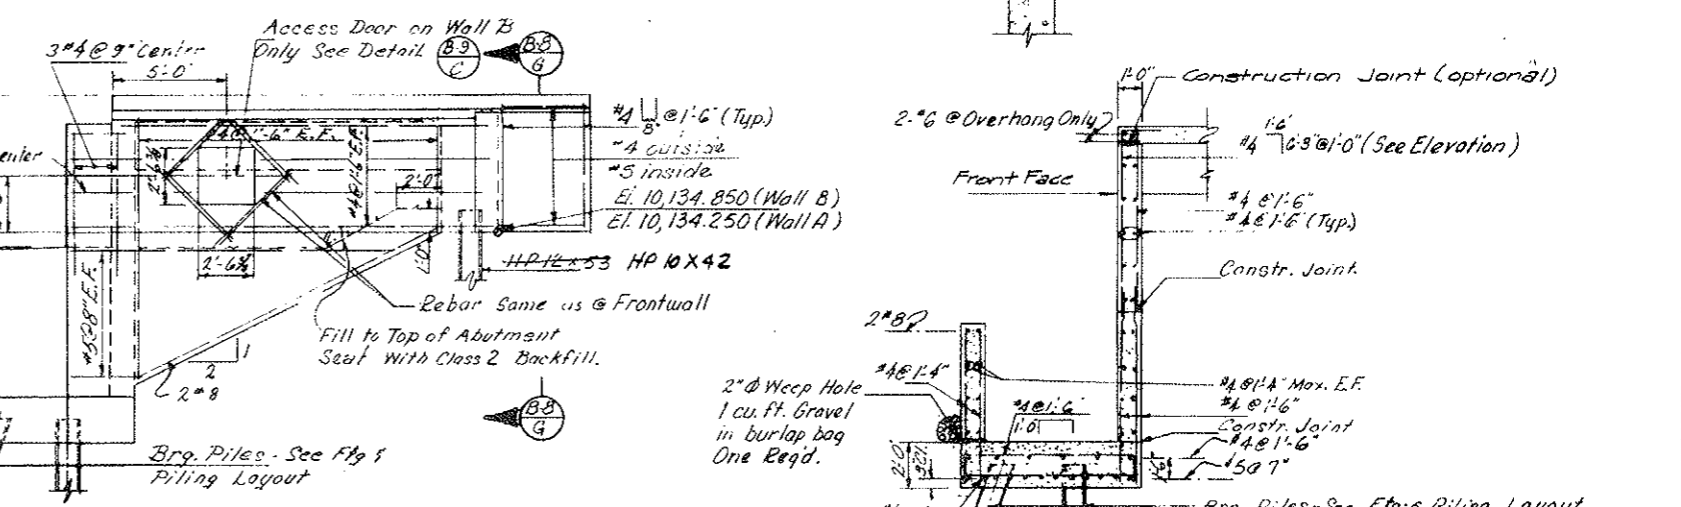 Access Door on Wall B
Only See Detail
B-9
C
B-8
G
3 #4 @ 9" Center
5'-0"
#4 @ 1'-6" (Typ.)
8"
#4 outside
#5 inside
El. 10,134.850 (Wall B)
El. 10,134.250 (Wall A)
#4@1'-6" E.F.
2'-0"
1'-0"
HP 12 x 53 HP 10 X 42
#5@8" E.F.
Rebar Same as @ Frontwall
Fill to Top of Abutment
Seat With Class 2 Backfill.
1
2
2 #8
B-8
G
Brg. Piles - See Ftg &
Piling Layout
1'-0"
Construction Joint (optional)
2-#6 @ Overhang Only
1'-6"
#4 6'-3" @ 1'-0" (See Elevation)
Front Face
#4 @ 1'-6"
#4 @ 1'-6" (Typ.)
Constr. Joint
2 #8
#4@1'-4"
2" Ø Weep Hole
1 cu. ft. Gravel
in burlap bag
One Req'd.
#4@1'-6"
1'-0"
#4 @ 1'-4" Max. E.F.
#4 @ 1'-6"
Constr. Joint
#4 @ 1'-6"
#5@7"
2'-0"
Brg. Piles-See Ftg. & Piling Layout